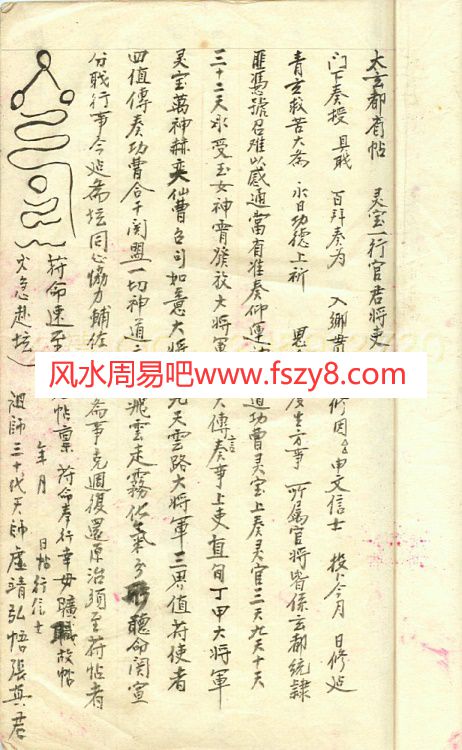 太玄都省帖　灵宝一行官君将吏
门下奏授　具職　百拜奏为　入鄉貫　修因　申文信士　投卜今月　日修延
青玄救苦大斋　永日功德上祈　恩　度生方事　所属官将皆係玄都統隸
匪憑號召难以感通當有准奏仰運　道功曹灵宝上奏灵官三天九天十天
三十二天永受玉女神霄旌放大將軍　大傳言奏事上吏直旬丁甲大將軍
灵宝萬神赫奕仙曹各司如意大將　九天雲路大將軍三界值符使者
四值傳奏功曹合干関盟一切神道　飛雲走霧　氣分形聽命関宣
分職行事今延斋坛同心恊力輔佐　斋事克週復還原治須至符帖者
符命速至　帖禀符命奉行幸毋曠職故帖
火急赴坛　年　月　日帖行信士
祖師三十代天師虛靖弘悟張真君
风水周易吧www.fszy8.com
网址：www.fszy8.com